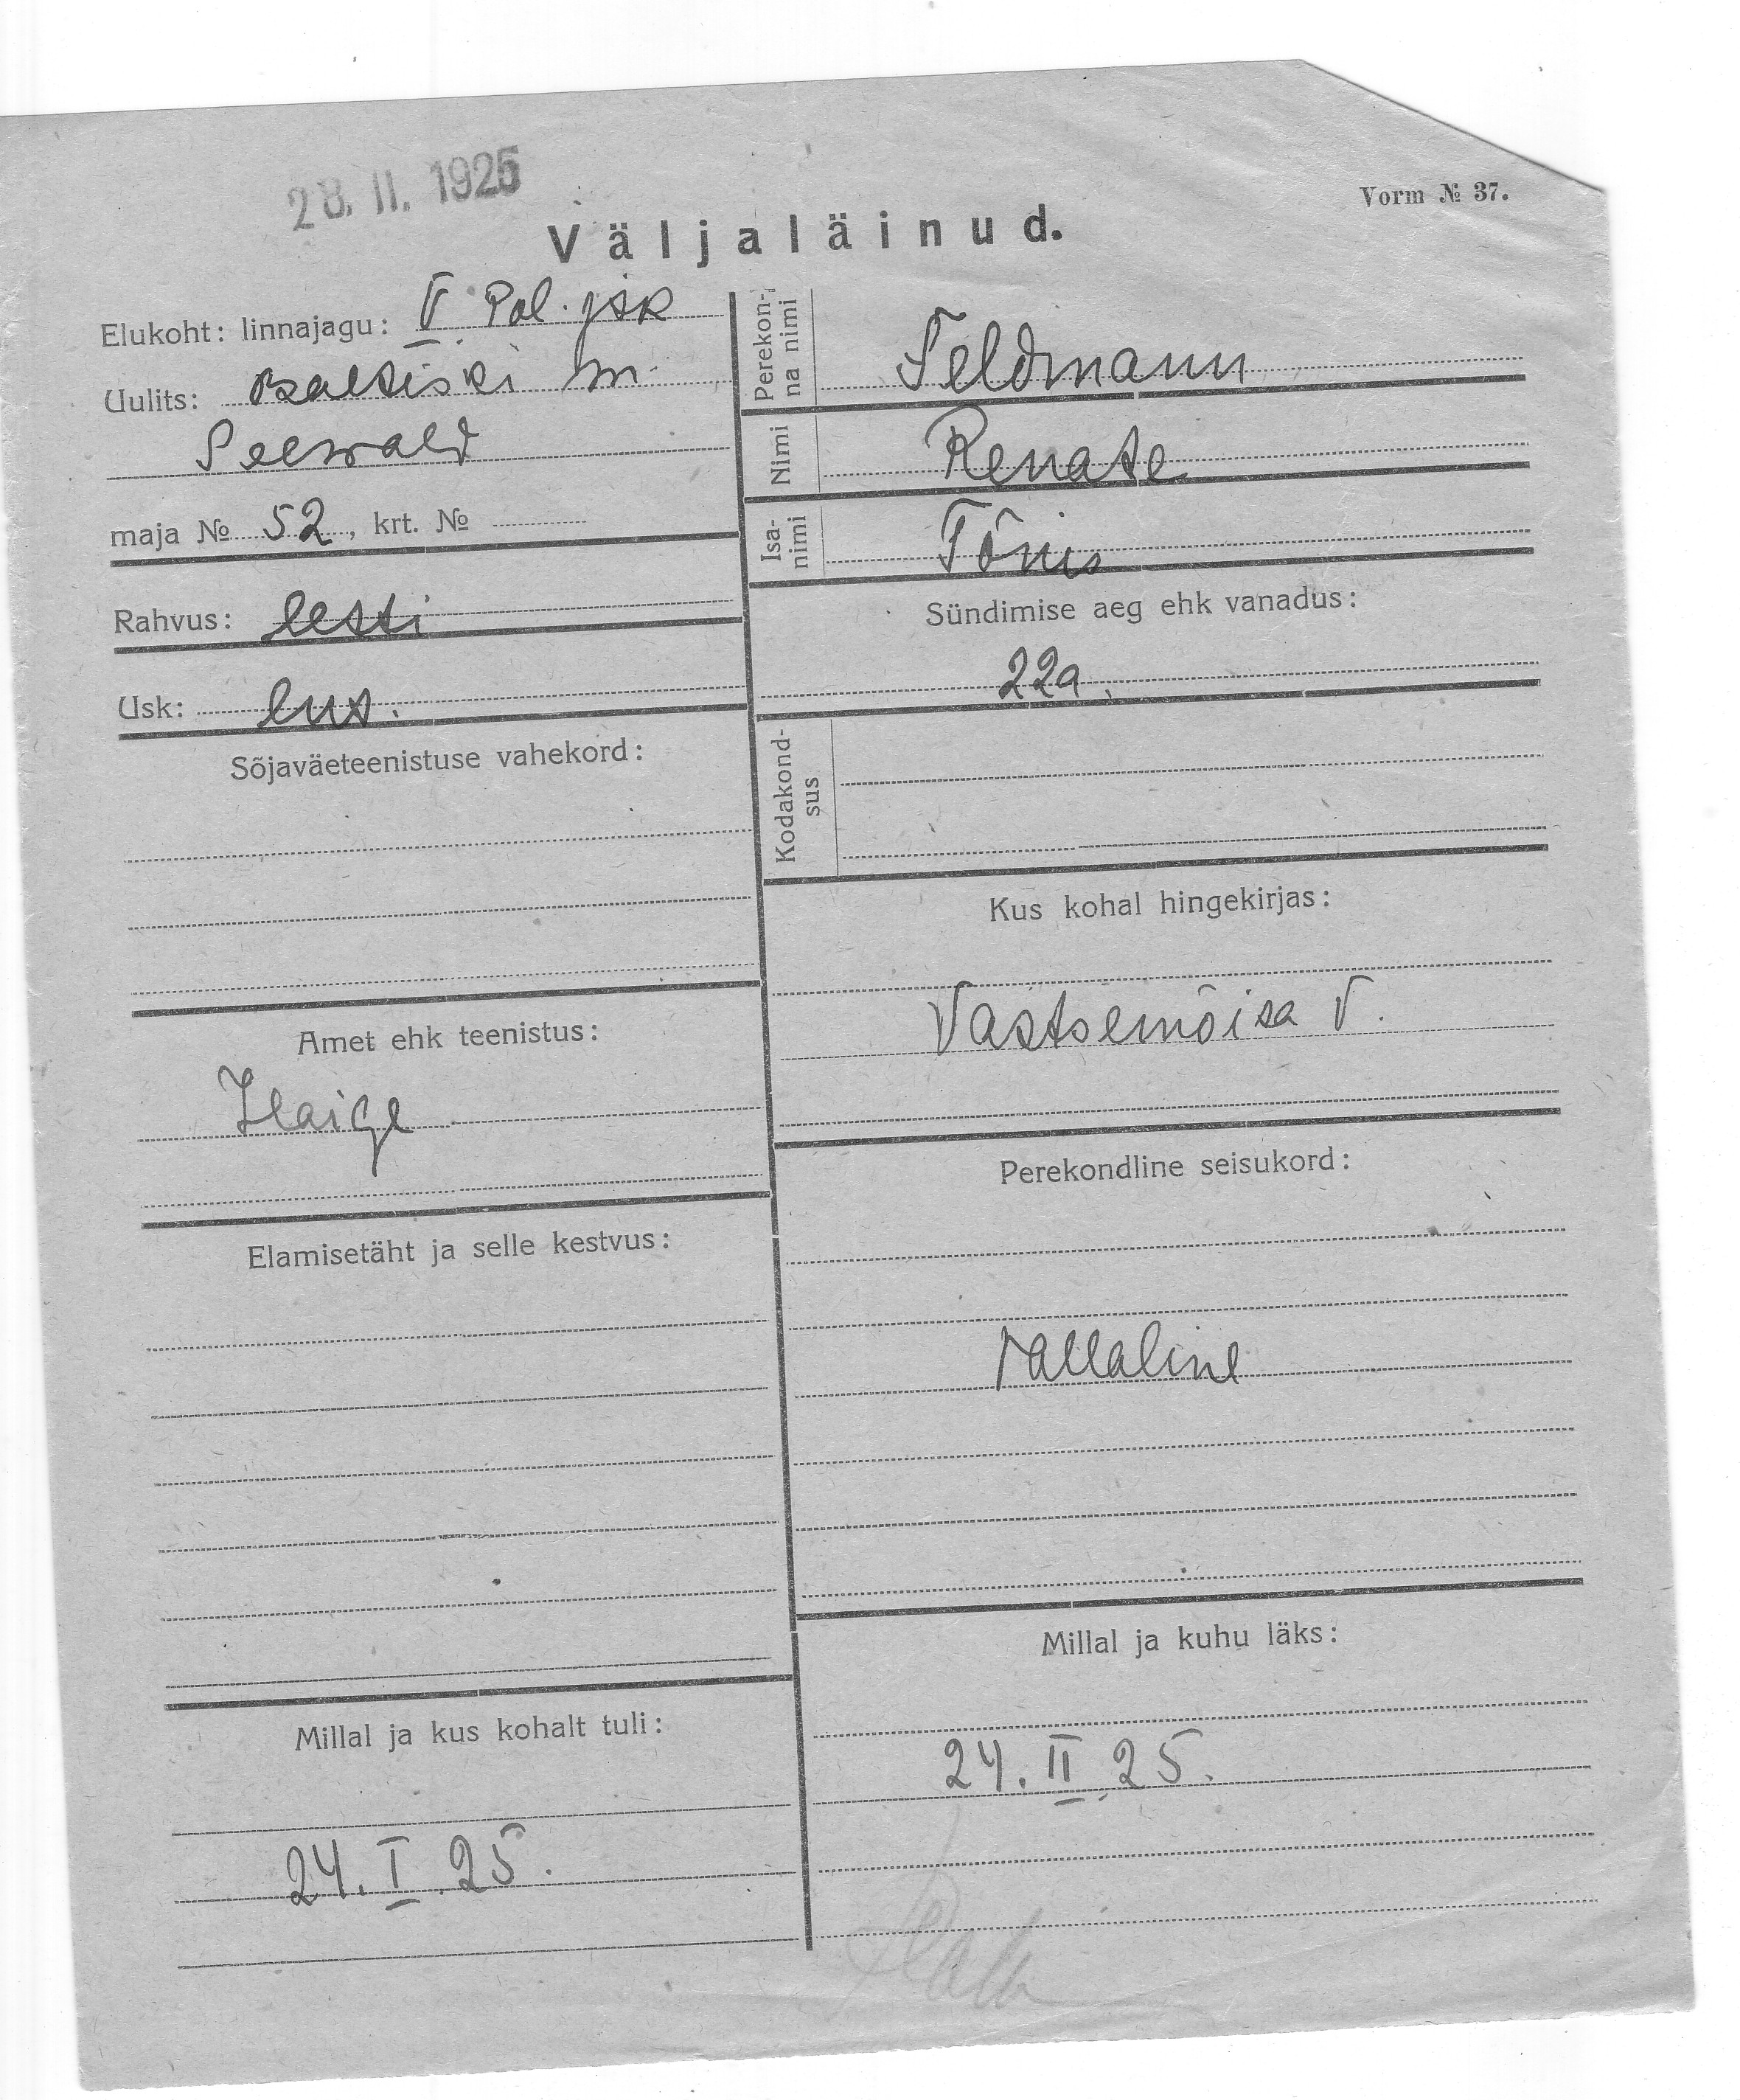 28. II. 1925
Vorm № 37.
Väljaläinud.
Elukoht: linnajagu: V Pol. jsk
Uulits: Baltiski m.
Seewald
maja № 52, krt. №
Rahvus: eesti
Usk: lut.
Sõjaväeteenistuse vahekord:
Amet ehk teenistus:
Haige
Elamisetäht ja selle kestvus:
Millal ja kus kohalt tuli:
24. I. 25.
Perekon-
na nimi
Feldmann
Nimi
Renate
Isa-
nimi
Tõnis
Sündimise aeg ehk vanadus:
22a.
Kodakond-
sus
Kus kohal hingekirjas:
Vastsemõisa V.
Perekondline seisukord:
vallaline
Millal ja kuhu läks:
24. II 25.